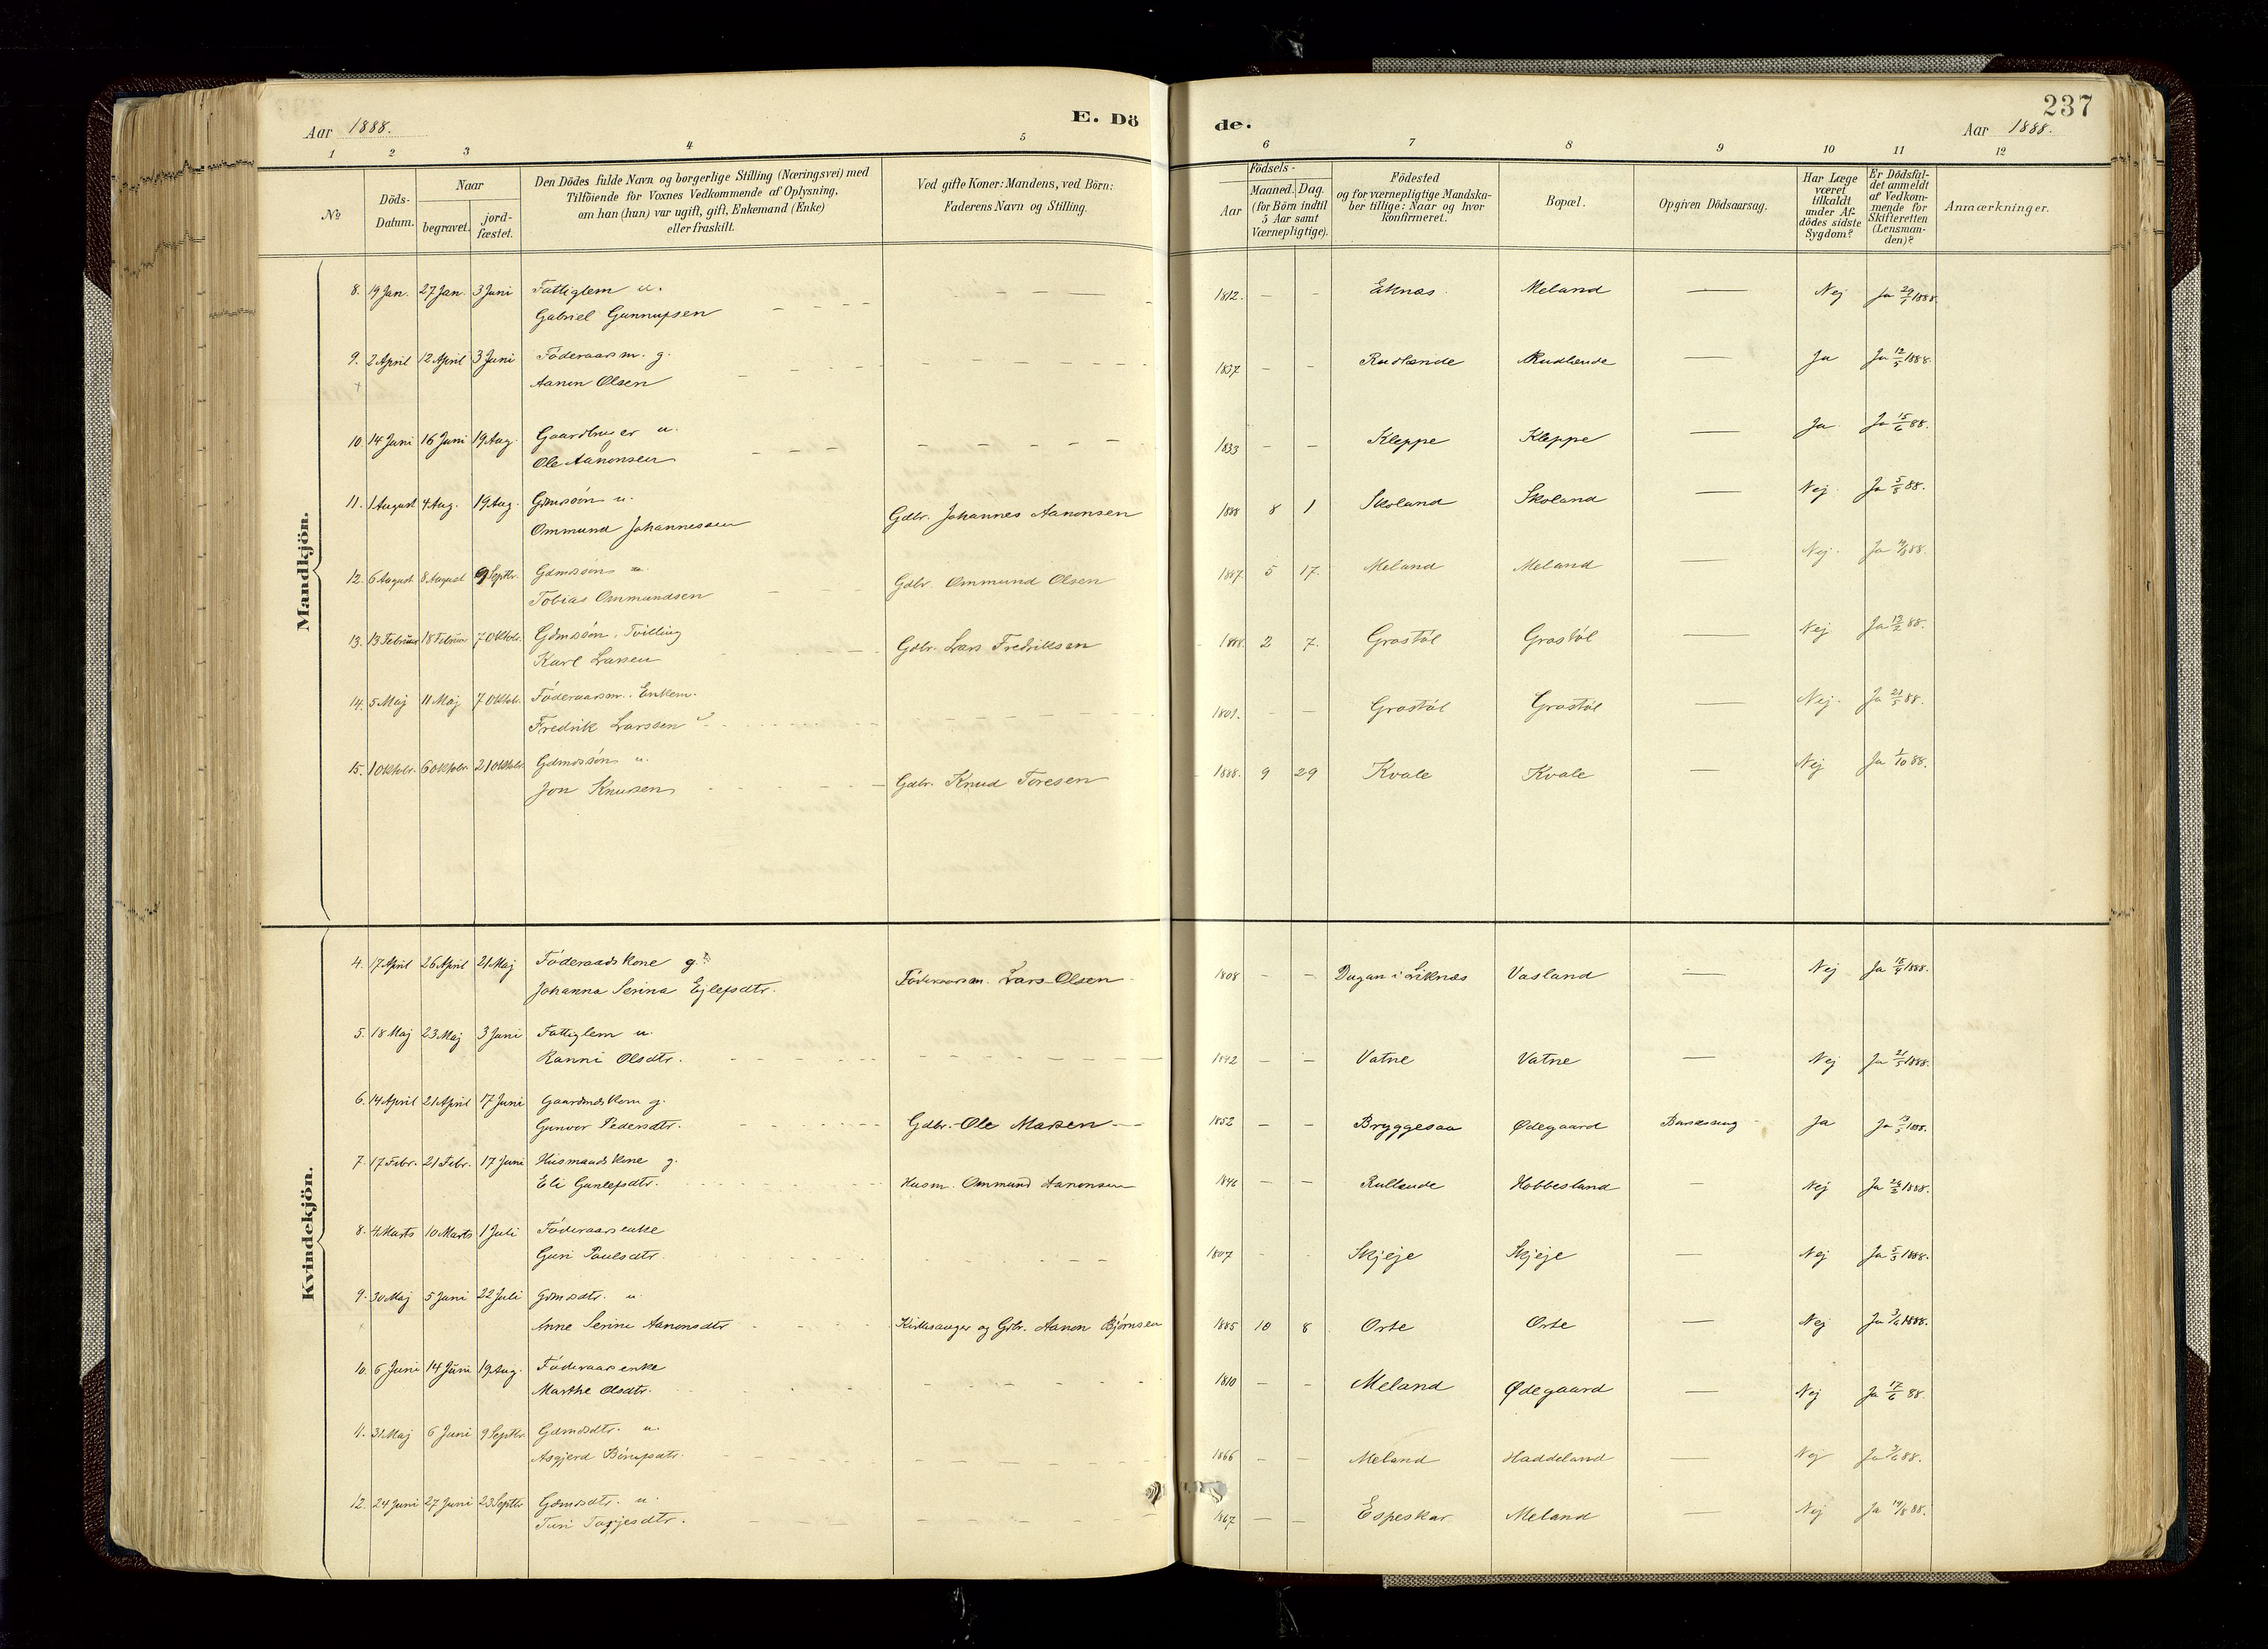 237
Aar 1888.
E. Dö
de.
Aar 1888.
1 2 3 4 5 6 7 8 9 10 11 12
№
Döds-Datum.
Naar
begravet.
jord-fæstet.
Den Dödes fulde Navn og borgerlige Stilling (Næringsvei) med
Tilföiende for Voxnes Vedkommende af Oplysning,
om han (hun) var ugift, gift, Enkemand (Enke)
eller fraskilt.
Ved gifte Koner: Mandens, ved Börn:
Faderens Navn og Stilling.
Födsels-
Aar
Maaned. Dag.
(for Börn indtil
5 Aar samt
Værnepligtige).
Födested
og for værnepligtige Mandska-
ber tillige: Naar og hvor
konfirmeret.
Bopæl.
Opgiven Dödsaarsag.
Har Læge
været
tilkaldt
under Af-
dödes sidste
Sygdom?
Er Dödsfal-
det anmeldt
af Vedkom-
mende for
Skifteretten
(Lensman-
den)?
Anmærkninger.
Mandkjön.
8. 19 Jan. 27 Jan. 3 Juni Fattiglem u.
Gabriel Gunnufsen 1812. Meland Nej Ja 29/1 1888.
9. 2 April 12 April 3 Juni Föderaasm. g.
Aanon Olsen 1837 Rudlænde Rudlænde Ja Ja 12/5 1888.
10. 14 Juni 16 Juni 19 Aug. Gaardbruger u.
Ole Aanonsen 1833 Kleppe Kleppe Ja Ja 15/6 88.
11. 1 August 4 Aug. 19 Aug. Gdmssön u.
Ommund Johannessen Gdbr. Johannes Aanonsen 1888 8 1 Skoland Skoland Nej Ja 5/8 88.
12. 6 August 8 August 9 Septbr. Gdmssön u.
Tobias Ommundsen Gdbr. Ommund Olsen 1887. 5 17. Meland Meland Nej. Ja 88.
13. 13 Februar 18 Februar 7 Oktobr. Gdmssön. Tvilling
Karl Larsen Gdbr. Lars Fredriksen 1888. 2 7. Grostöl Grostöl Nej Ja 88.
14. 5 Maj 11 Maj 7 Oktobr. Föderaasm. Enkem.
Fredrik Larssen 1801. Grostöl Grostöl Nej. Ja 21/5 88.
15. 1 Oktobr. 6 Oktobr 21 Oktobr Gdmssön u.
Jon Knudsen Gdbr. Knud Toresen 1888. 9 29 Kvale Kvale Nej Ja 1/10 88.
Kvindekjön.
4. 17 April 26 April 21 Maj Föderaadskone g.
Johanna Serina Ejlefsdtr. Föderaasm. Lars Olsen 1808 Dugan i Liknæs Vasland Nej Ja 1888.
5. 18 Maj 23 Maj 3 Juni Fattiglem u.
Ranni Olsdtr. 1842 Vatne Vatne Nej Ja 21/5 1888.
6. 14 April 21 April 17 Juni Gaardmdskone g.
Gunvor Pedersdtr. Gdbr. Ole Marsen 1852 Bryggesaa Ødegaard Ja Ja 1888.
7. 17 Febr. 21 Febr. 17 Juni Husmandskone g.
Eli Gunlefsdtr. Husm. Ommund Aanonsen 1846 Rullende Hobbesland Nej Ja 1888.
8. 4 Marts 10 Marts 1 Juli Föderaasenke
Guri Paulsdtr. 1807 Skjeje Skjeje Nej Ja 5/3 1888.
9. 30 Maj 5 Juni 22 Juli Gdmsdtr. u.
Anne Serine Aanonsdtr Kirkesanger og Gdbr. Aanon Bjørnsen 1885 10 8 Orte Orte Nej Ja 3/6 1888.
10. 6 Juni 14 Juni 19 Aug. Föderaasenke
Marthe Olsdtr. 1810 Meland Ødegaard Nej Ja 17/6 88.
11. 31 Maj 6 Juni 9 Septbr Gdmdsdtr. u.
Asgjerd 1866 Meland Haddeland Nej Ja 3/6 88.
12. 24 Juni 27 Juni 23 Septbr Gdmdsdtr. u.
Turi Tarjesdtr. 1867 Espeskar Meland Nej Ja 88.